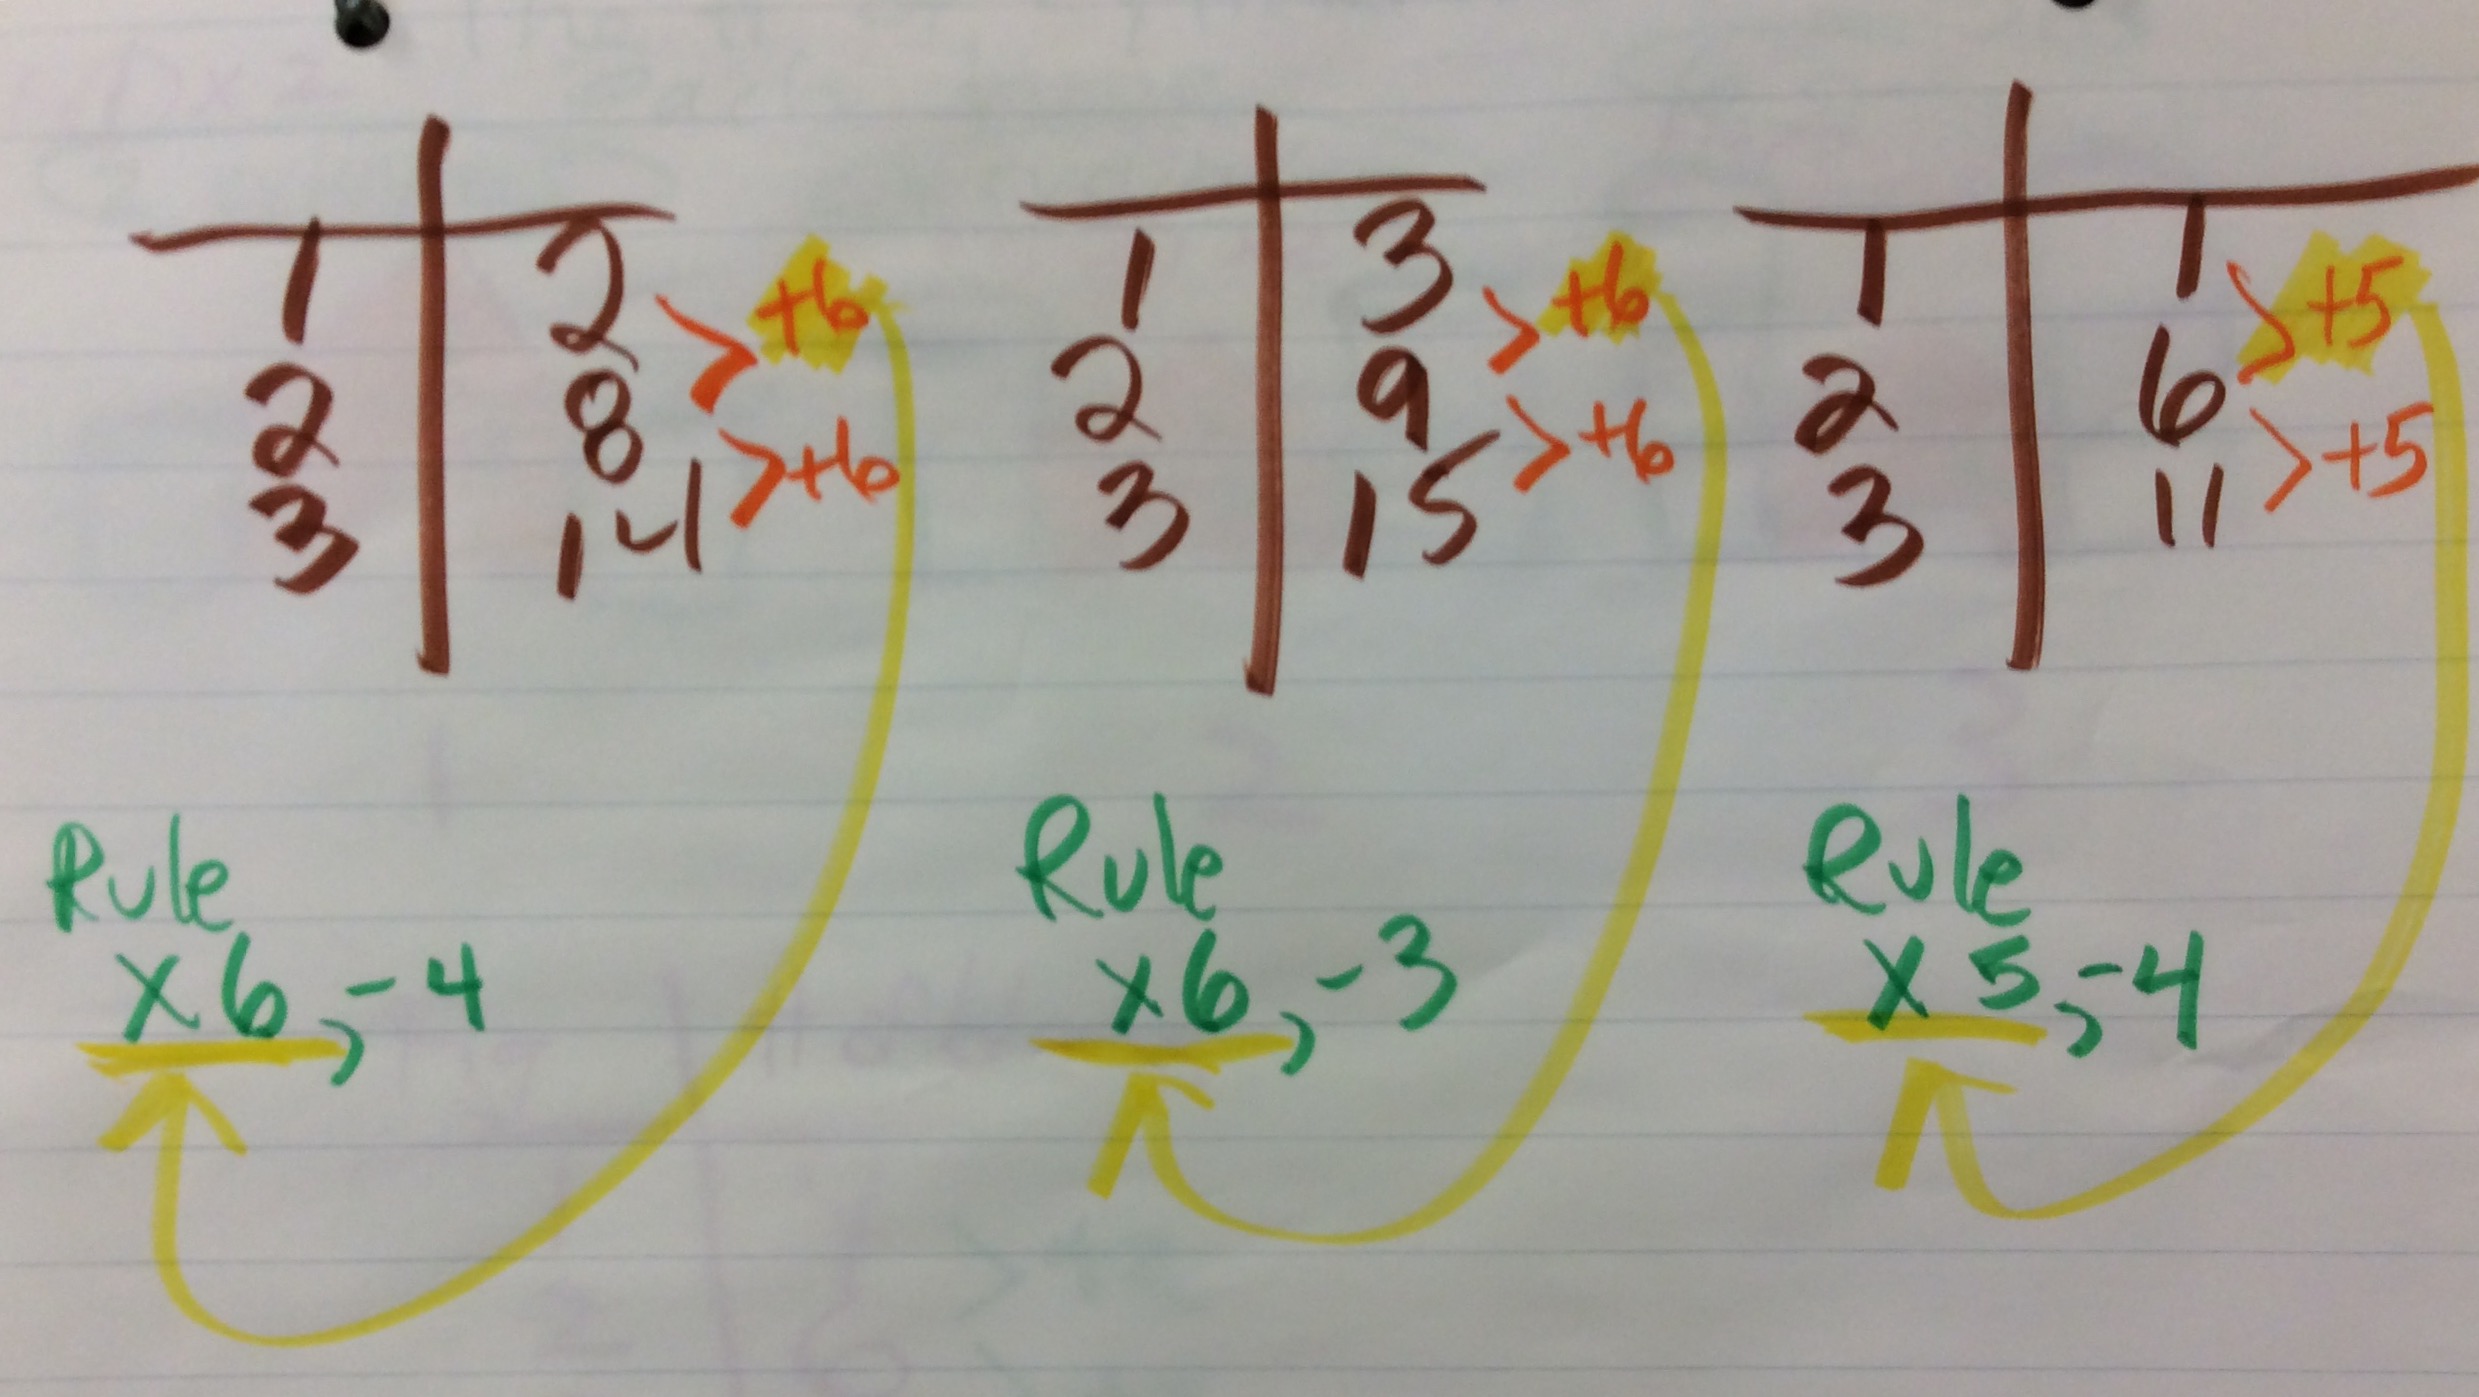 1 2 >+6
2 8 >+6
3 14
Rule
x6, -4
1 3 >+6
2 9 >+6
3 15
Rule
x6, -3
1 1 >+5
2 6 >+5
3 11
Rule
x5, -4